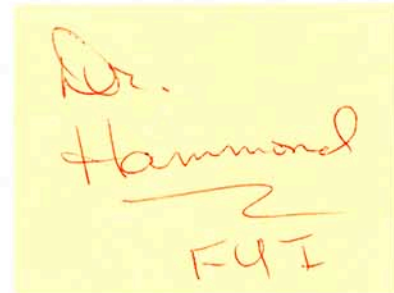 Dr.
Hammond
FYI